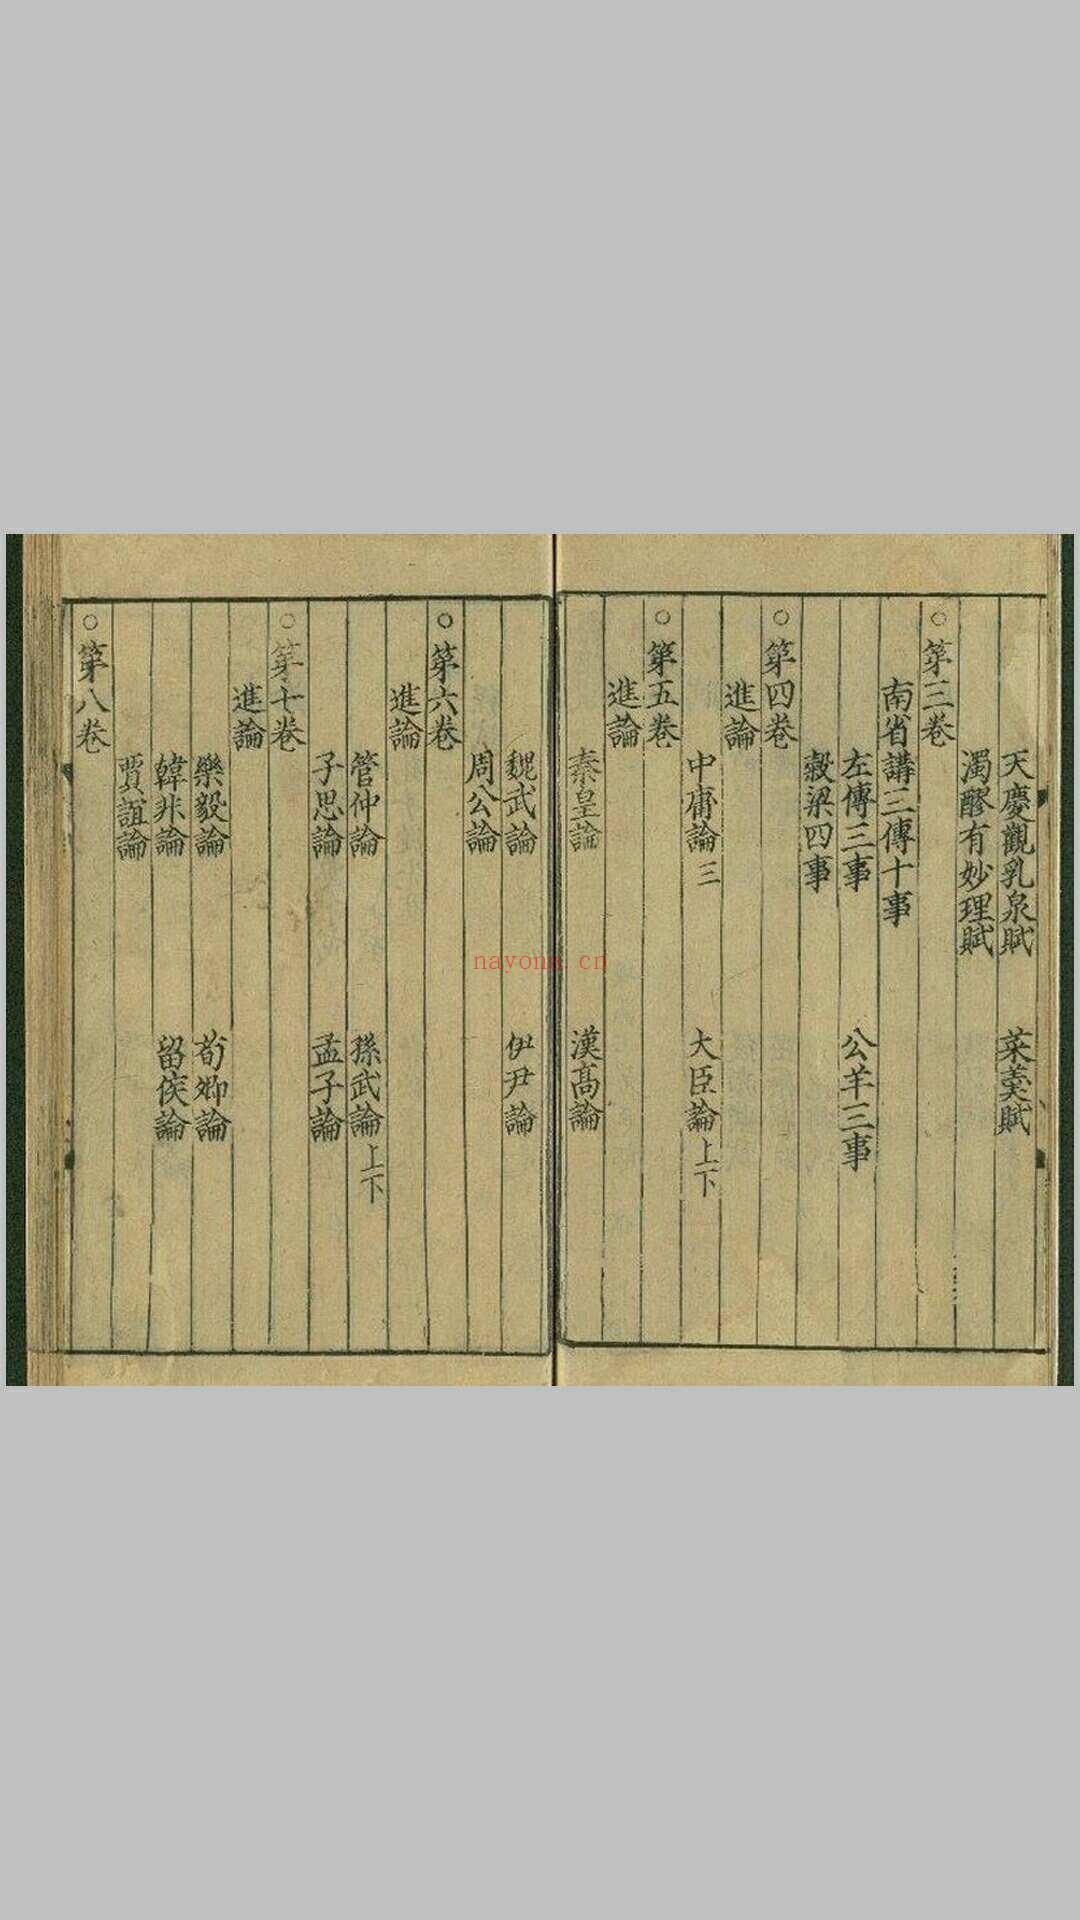 天慶觀乳泉賦　菜羹賦
濁醪有妙理賦
○第三卷
南省講三傳十事
左傳三事　公羊三事
穀梁四事
○第四卷
進論
中庸論三　大臣論上下
○第五卷
進論
秦皇論　漢高論
魏武論　伊尹論
周公論
○第六卷
進論
管仲論　孫武論上下
子思論　孟子論
○第七卷
進論
樂毅論　荀卿論
韓非論　留侯論
賈誼論
○第八卷
nayona.cn